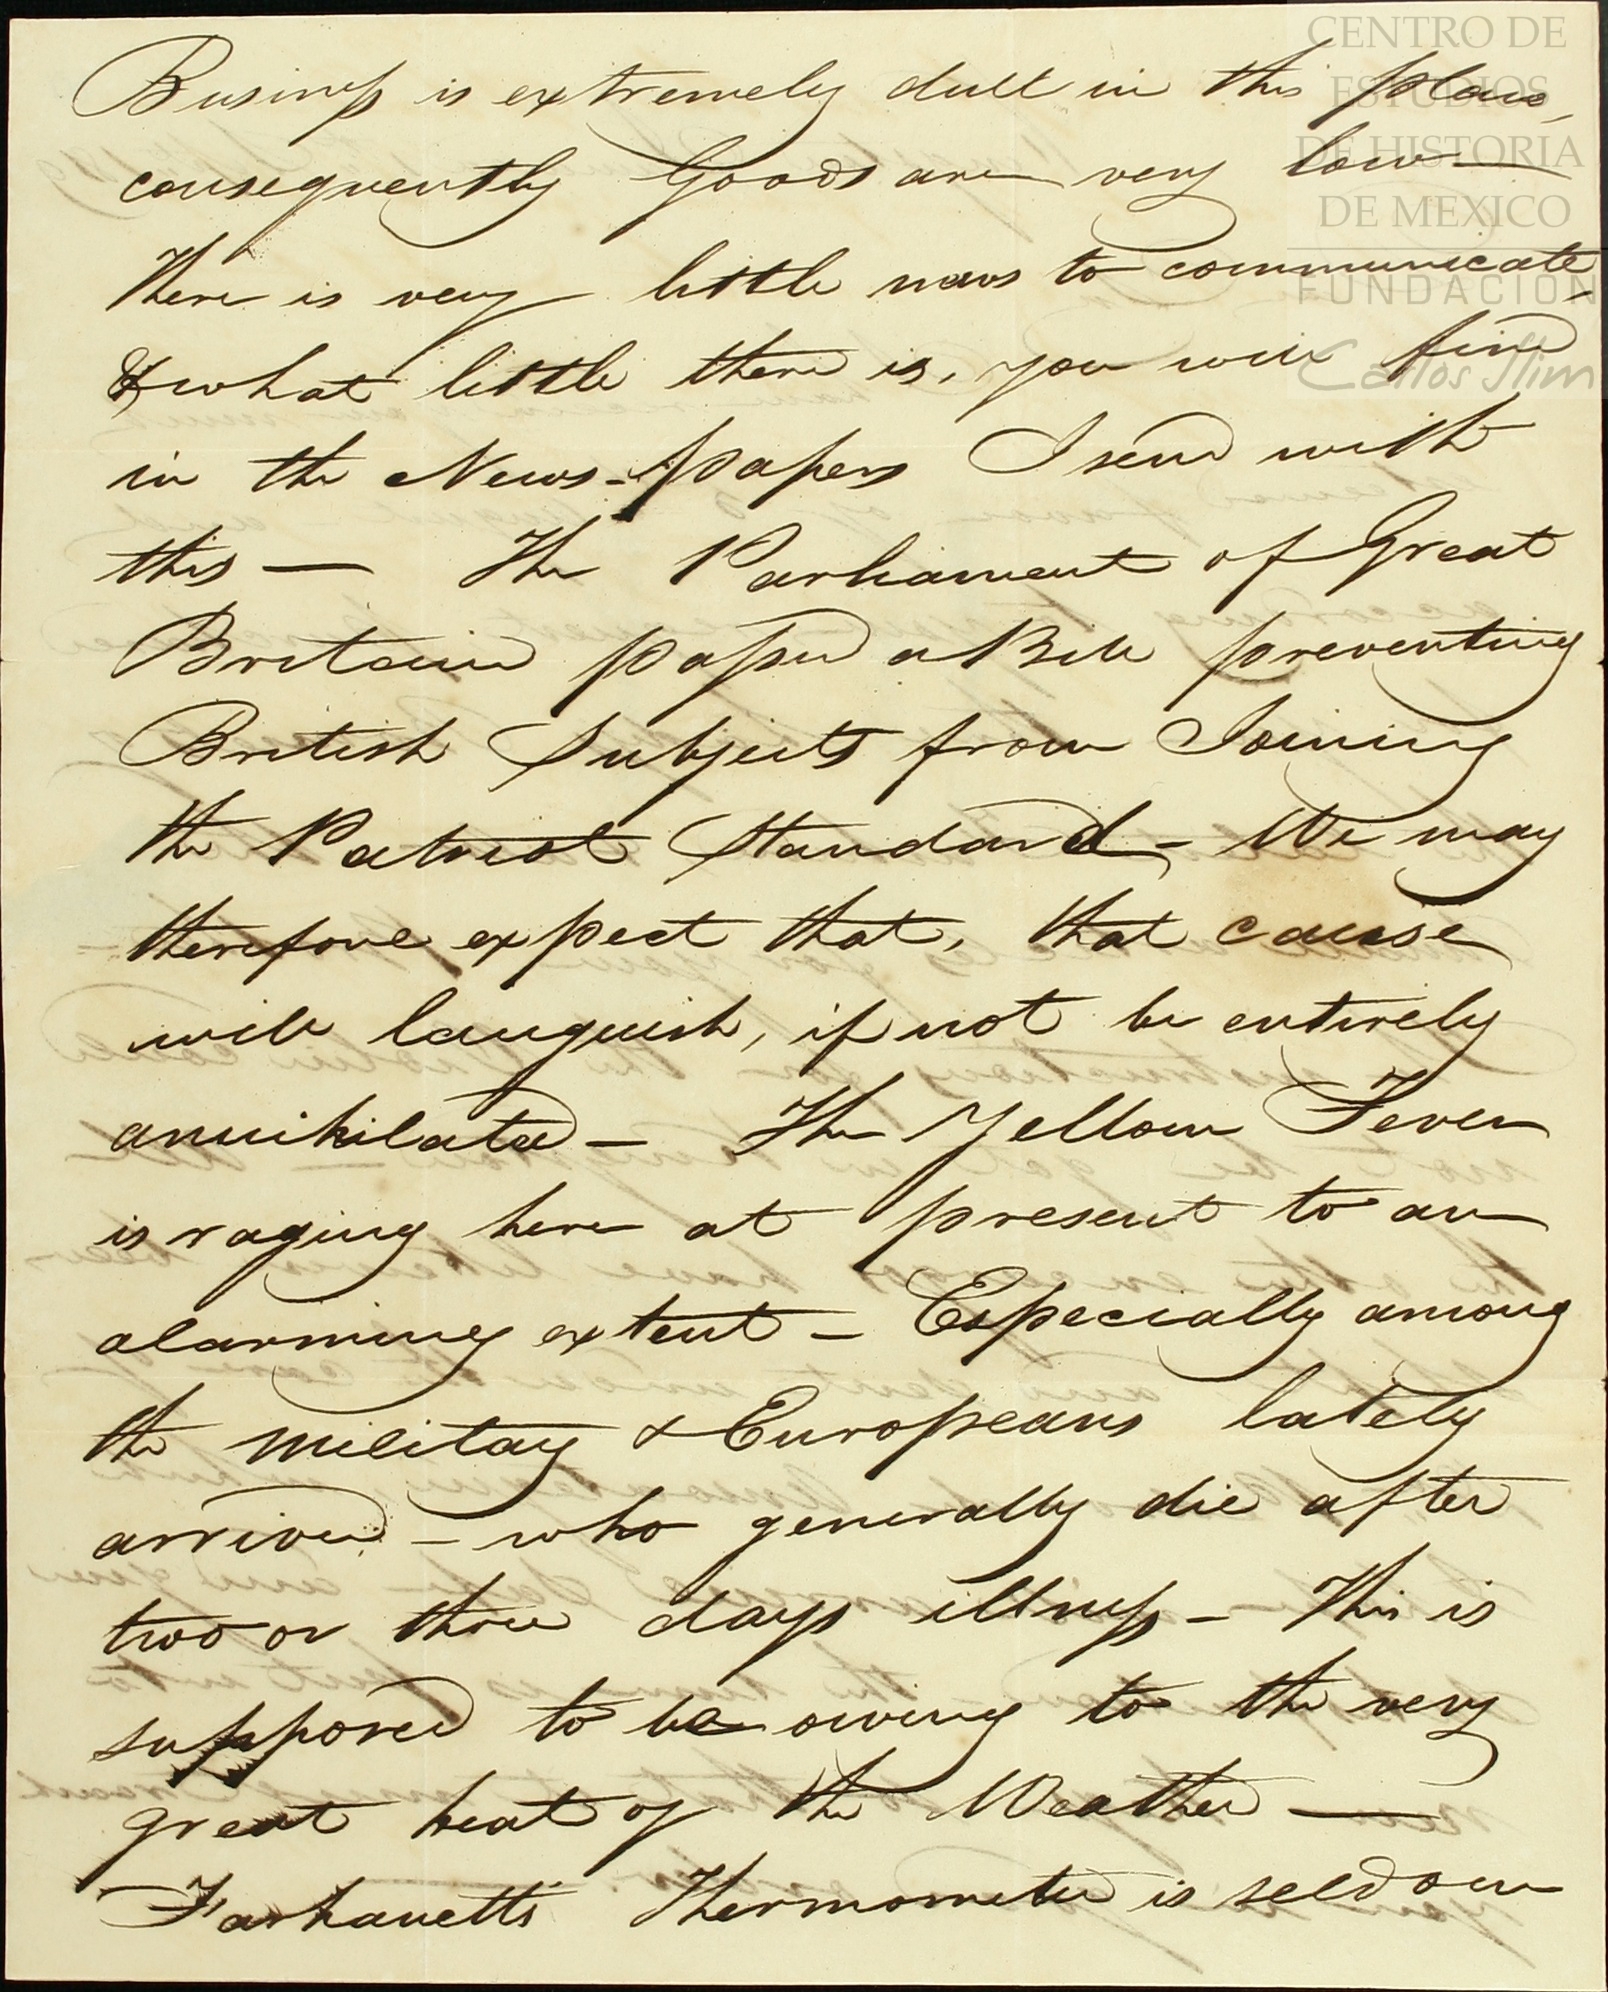 CENTRO DE
ESTUDIOS
DE HISTORIA
DE MEXICO
FUNDACIÓN
Carlos Slim
Business is extremely dull in this place,
consequently Goods are very low —
There is very little news to communicate,
& what little there is, you will find
in the News-papers I send with
this — The Parliament of Great
Britain passed a Bill preventing
British Subjects from Joining
the Patriot Standard — We may
therefore expect that, that cause
will languish, if not be entirely
annihilated — The Yellow Fever
is raging here at present to an
alarming extent — Especially among
the military & Europeans lately
arrived — who generally die after
two or three days illness — This is
supposed to be owing to the very
great heat of the Weather —
Farhanett's Thermometer is seldom